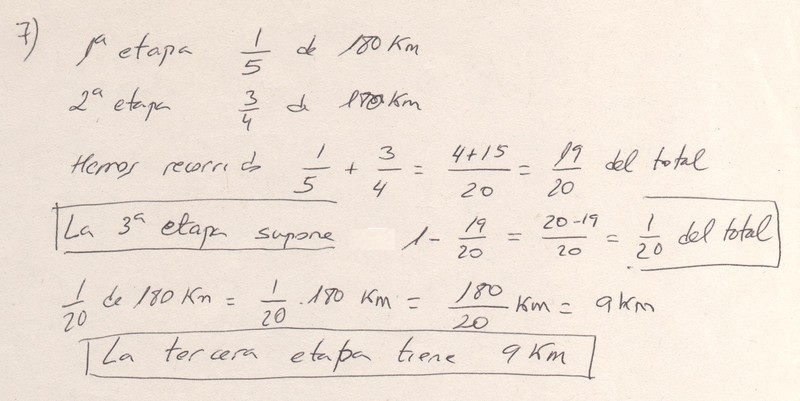 7) 1ª etapa 1/5 de 180 Km
2ª etapa 3/4 de 180 Km
Hemos recorrido 1/5 + 3/4 = 4+15/20 = 19/20 del total
La 3ª etapa supone 1 - 19/20 = 20-19/20 = 1/20 del total
1/20 de 180 Km = 1/20 . 180 Km = 180/20 Km = 9 Km
La tercera etapa tiene 9 Km